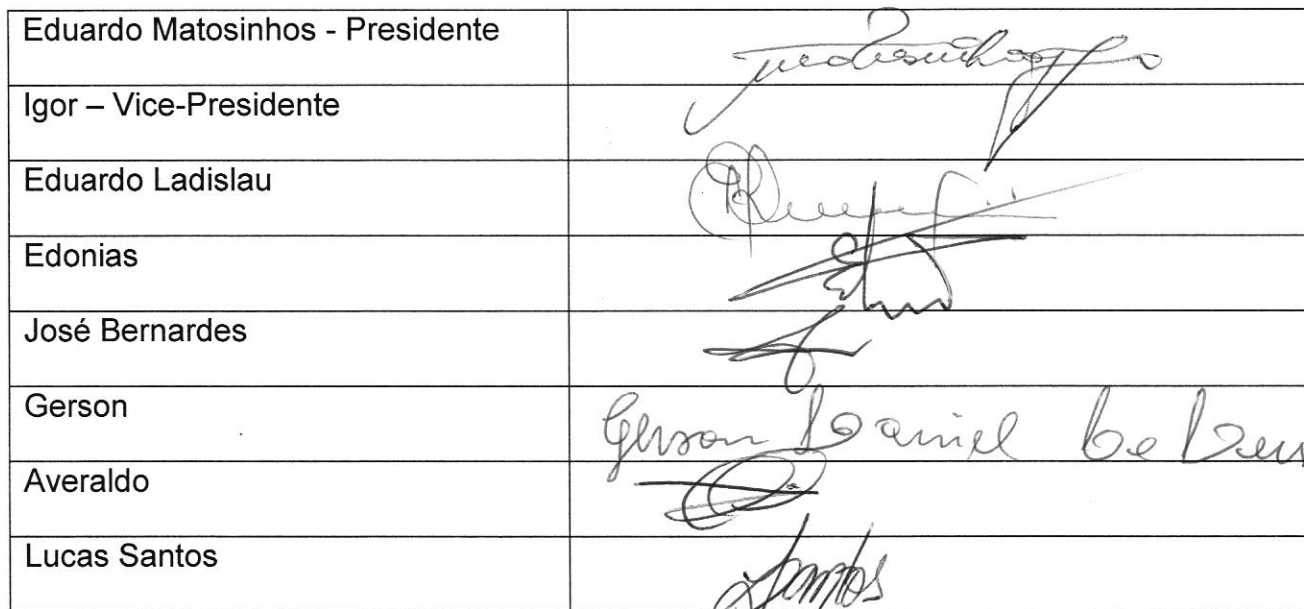 Eduardo Matosinhos - Presidente
Igor – Vice-Presidente
Eduardo Ladislau
Edonias
José Bernardes
Gerson Gerson Daniel de Deus
Averaldo
Lucas Santos Santos